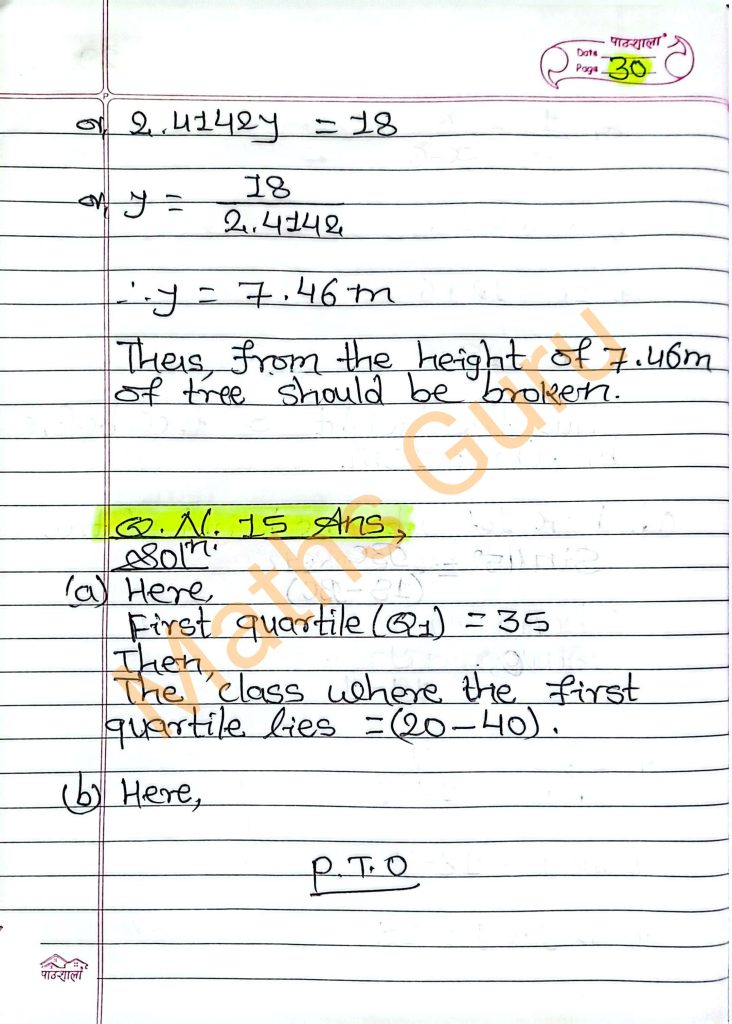 पाठशाला
Date
Page 30
or, 2.4142y = 18
or, y = 18
2.4142
∴ y = 7.46 m
Thus, from the height of 7.46m
of tree should be broken.
Maths Guru
Q. N. 15 Ans,
Solⁿ.
(a) Here,
First quartile (Q1) = 35
Then,
The class where the first
quartile lies = (20 - 40).
(b) Here,
P.T.O
पाठशाला